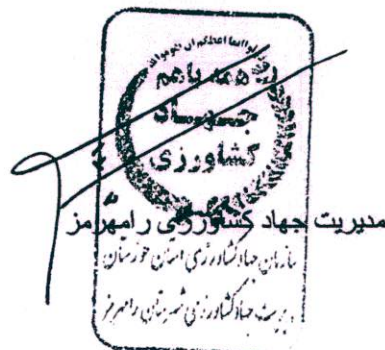 همه با هم
جهاد
کشاورزی
مدیریت جهاد کشاورزی رامهرمز
سازمان جهاد کشاورزی استان خوزستان
مدیریت جهاد کشاورزی شهرستان رامهرمز